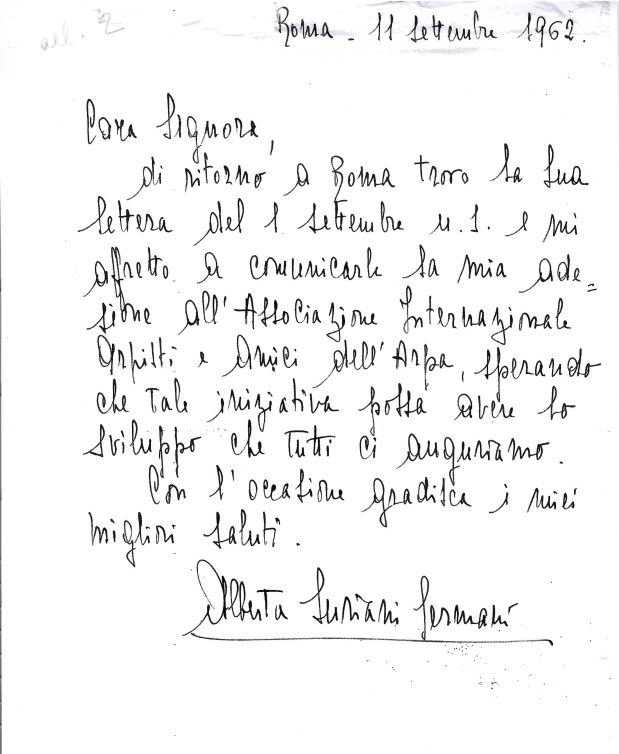 all. 2
Roma - 11 settembre 1962.
Cara Signora,
di ritorno a Roma trovo la Sua
lettera del 1 settembre u.s. e mi
affretto a comunicarle la mia ade=
sione all'Associazione Internazionale
Arpisti e Amici dell'Arpa, sperando
che tale iniziativa possa avere lo
sviluppo che tutti ci auguriamo.
Con l'occasione gradisca i miei
migliori saluti.
Alberta Suriani Germani